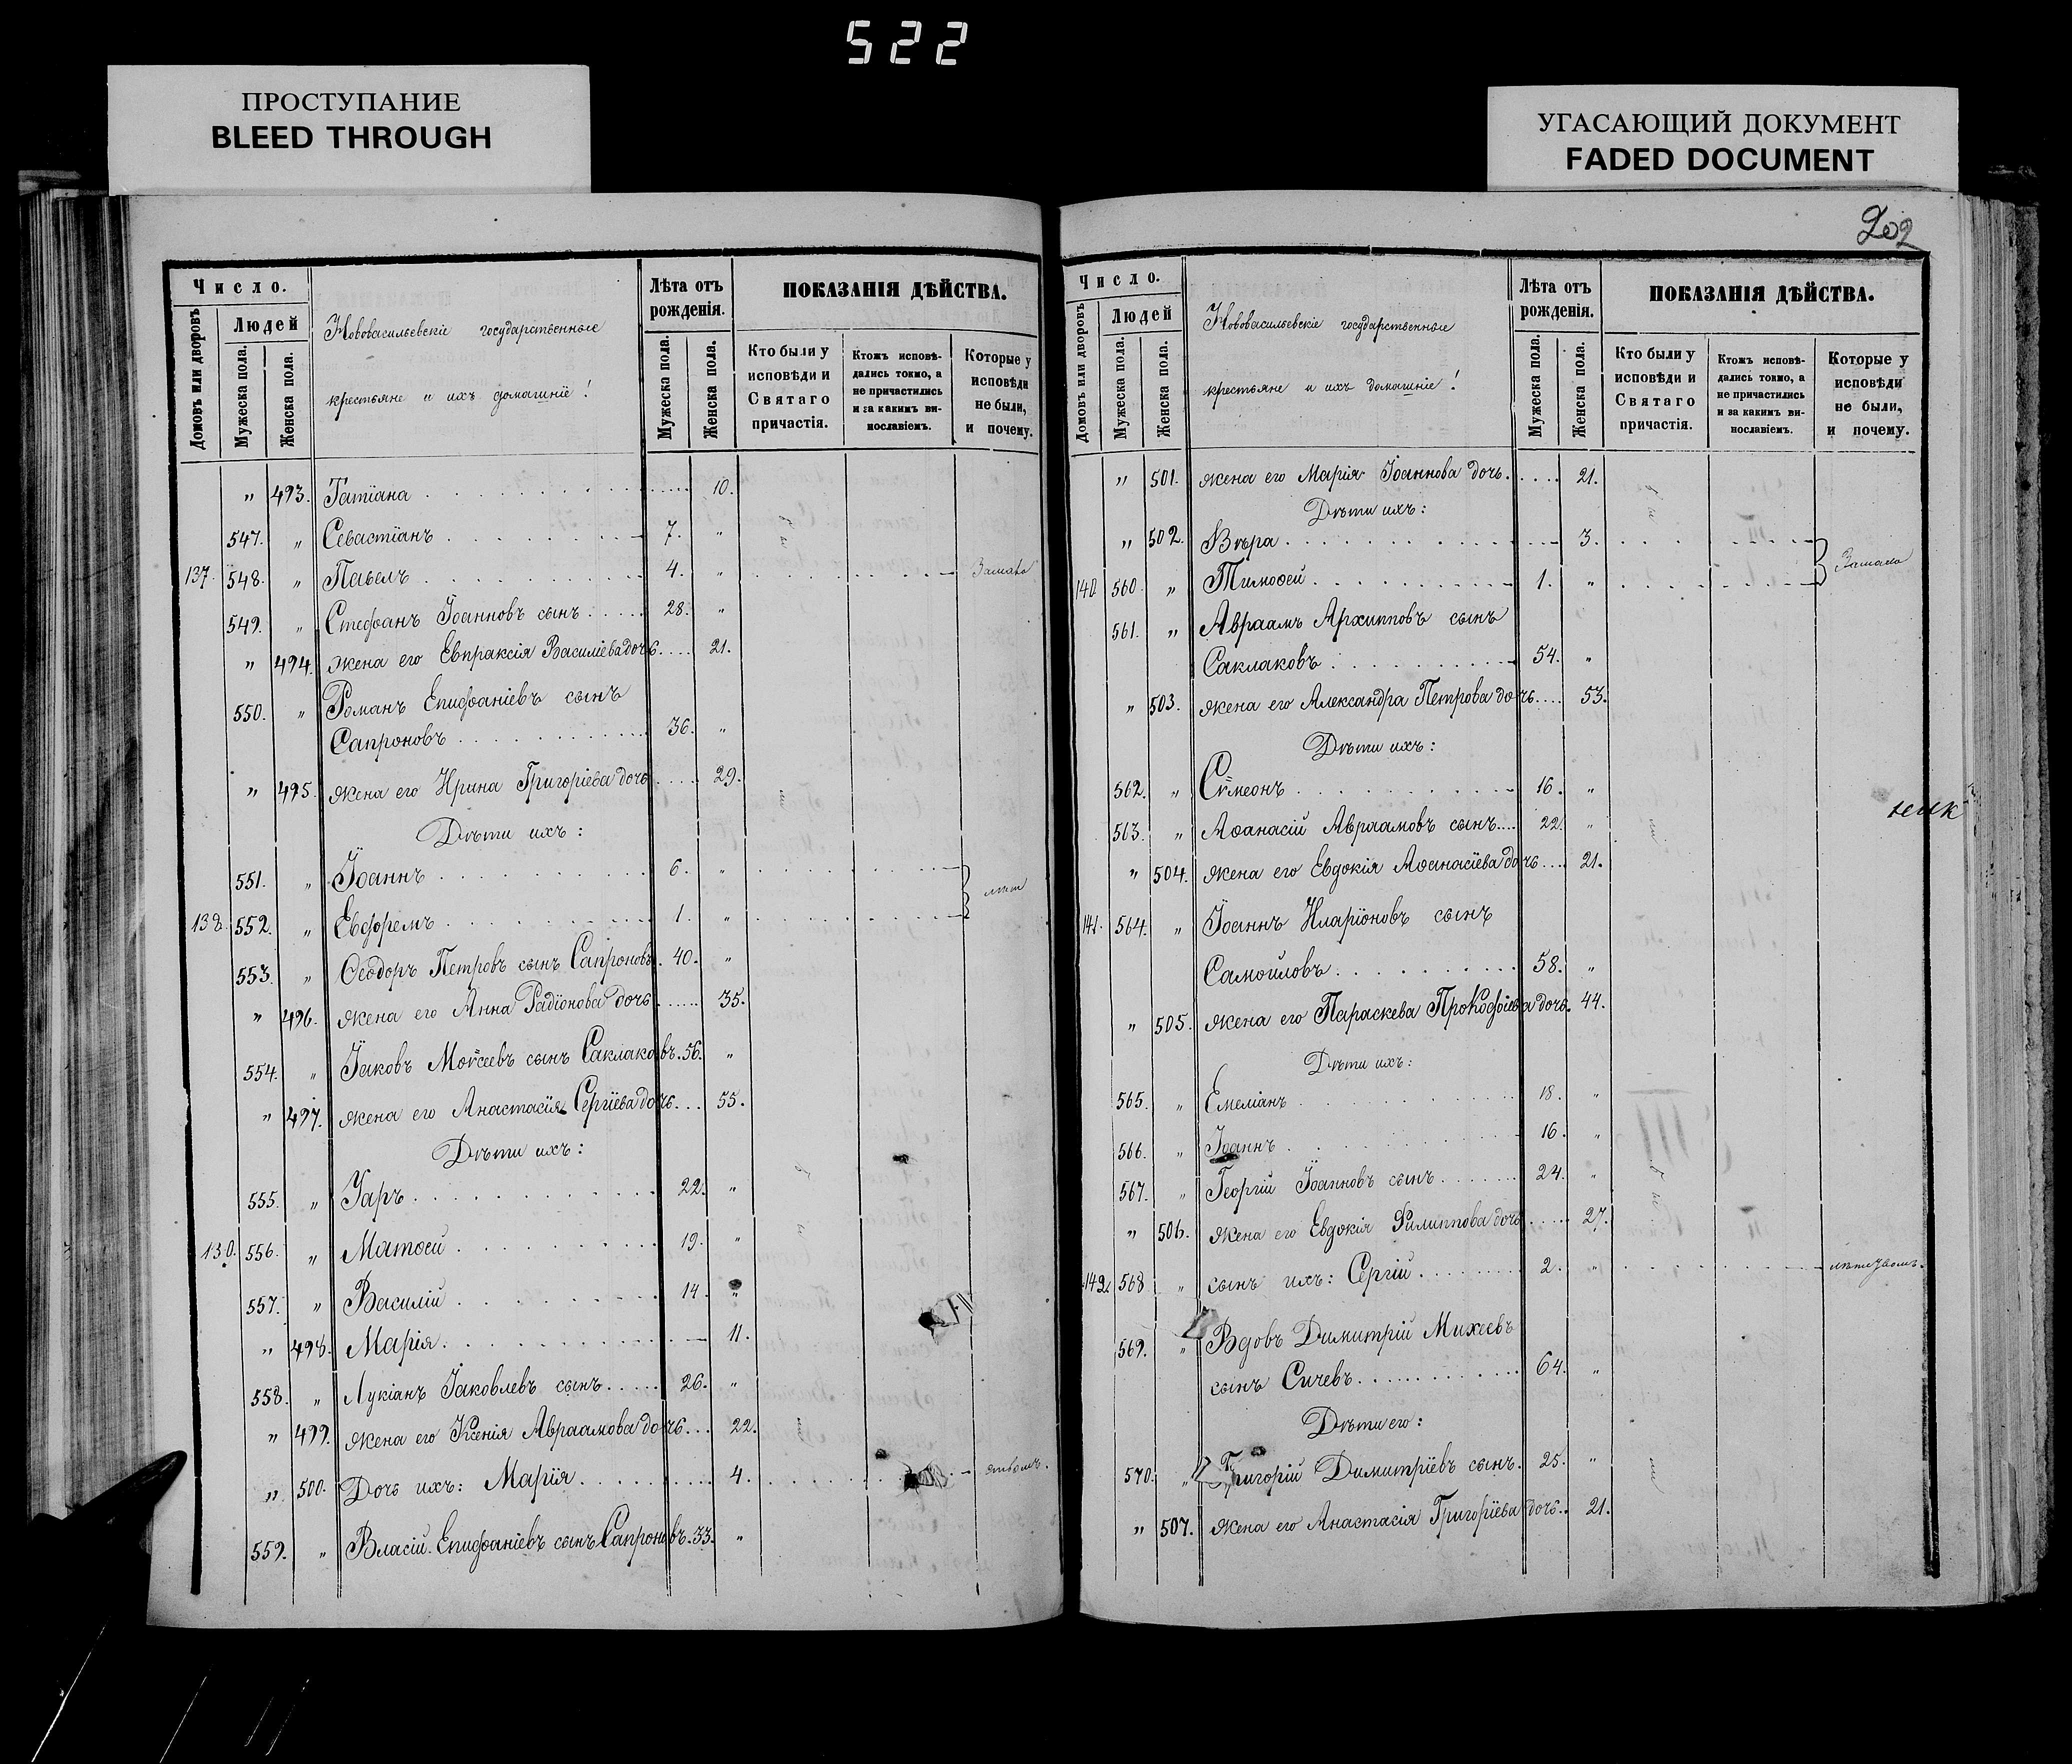 522
ПРОСТУПАНИЕ
BLEED THROUGH
УГАСАЮЩИЙ ДОКУМЕНТ
FADED DOCUMENT
Число.
Домовъ или дворовъ
Людей
Мужеска пола.
Женска пола.
Нововасильевскіе государственные
крестьяне и ихъ домашніе!
Лѣта отъ рожденія.
Мужеска пола.
Женска пола.
ПОКАЗАНІЯ ДѢЙСТВА.
Кто были у исповѣди и Святаго причастія.
Ктожъ исповѣдались токмо, а не причастились и за какимъ винословіемъ.
Которые у исповѣди не были, и почему.
" 493. Татіана 10.
547. " Севастіанъ 7. "
137. 548. " Павелъ 4. "
549. " Стефанъ Іоанновъ сынъ 28. "
" 494. жена его Евпраксія Василіева дочь 21.
550. " Романъ Епифаніевъ сынъ
Сапроновъ 36. "
" 495. жена его Ирина Григоріева дочь 29.
Дѣти ихъ:
551. " Іоаннъ 6. "
138. 552. " Евфремъ 1. "
553. " Ѳеодоръ Петровъ сынъ Сапроновъ. 40. "
" 496. жена его Анна Радіонова дочь 35.
554. " Іаковъ Моѵсеевъ сынъ Саклаковъ. 56. "
" 497. жена его Анастасія Сергіева дочь 55.
Дѣти ихъ:
555. " Уаръ 22. "
130. 556. " Матѳей 19. "
557. " Василій 14. "
" 498. Марія 11.
558. " Лукіанъ Іаковлевъ сынъ 26. "
" 499. жена его Ксенія Авраамова дочь 22.
" 500. Дочь ихъ: Марія 4.
559. " Власій Епифаніевъ сынъ Сапроновъ. 33. "
202
Число.
Домовъ или дворовъ
Людей
Мужеска пола.
Женска пола.
Нововасильевскіе государственные
крестьяне и ихъ домашніе!
Лѣта отъ рожденія.
Мужеска пола.
Женска пола.
ПОКАЗАНІЯ ДѢЙСТВА.
Кто были у исповѣди и Святаго причастія.
Ктожъ исповѣдались токмо, а не причастились и за какимъ винословіемъ.
Которые у исповѣди не были, и почему.
" 501. жена его Марія Іоаннова дочь. 21.
Дѣти ихъ:
" 502. Вѣра 3.
140 560 " Тимоѳей 1. "
561. " Авраамъ Архипповъ сынъ
Саклаковъ 54. "
" 503. жена его Александра Петрова дочь 53.
Дѣти ихъ:
562. " Сѵмеонъ 16. "
563. " Аѳанасій Авраамовъ сынъ 22. "
" 504. жена его Евдокія Аѳанасіева дочь 21.
141. 564. " Іоаннъ Иларіоновъ сынъ
Самойловъ 58. "
" 505. жена его Параскева Прокофіева дочь. 44.
Дѣти ихъ:
565. " Емеліанъ 18. "
566. " Іоаннъ 16. "
567. " Георгій Іоанновъ сынъ 24. "
" 506. жена его Евдокія Филиппова дочь 27.
142. 568 " сынъ ихъ: Сергій 2. "
569. " Вдовъ Димитрій Михеевъ
сынъ Сичевъ 64. "
Дѣти его:
570. " Григорій Димитріевъ сынъ. 25. "
" 507. жена его Анастасія Григоріева дочь. 21.